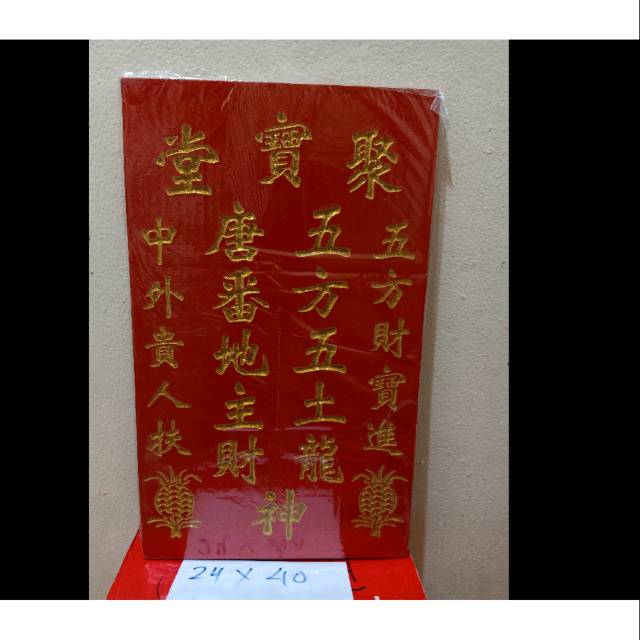 聚寶堂
五方財寶進
五方五土龍
唐番地主財
神
中外貴人扶
24 x 40